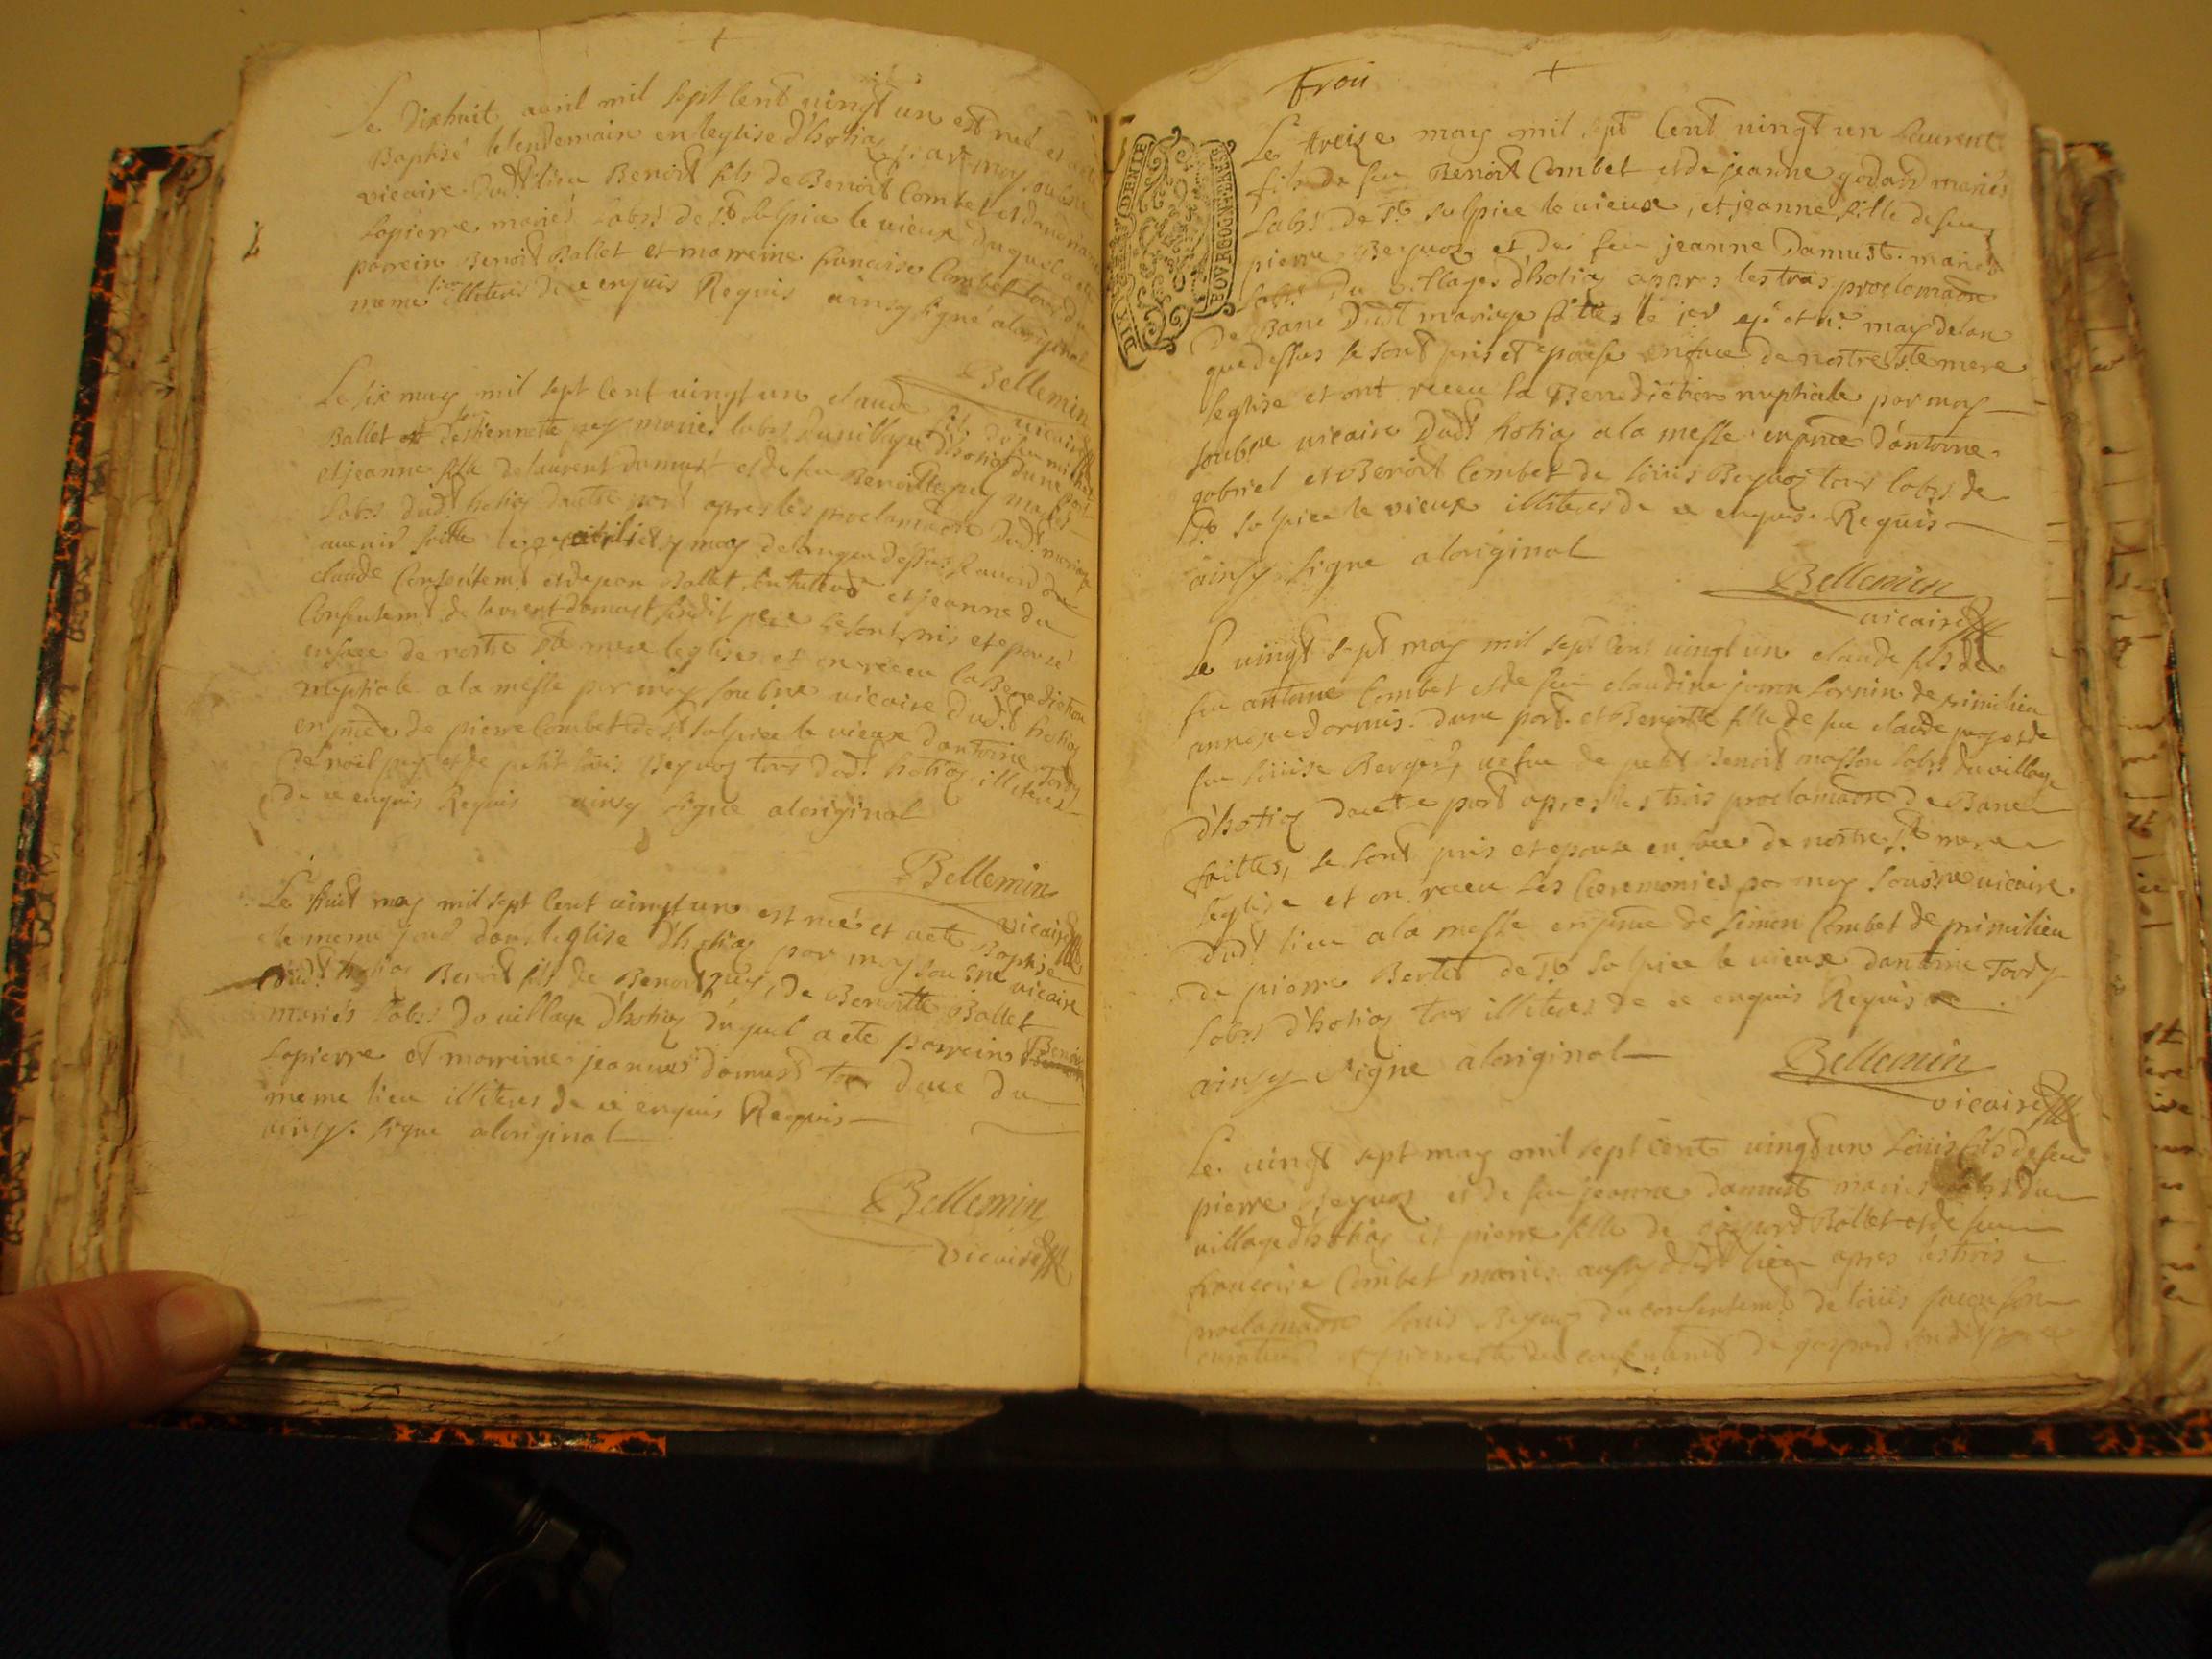 Le dixhuit auril mil sept Cent vingt un est né et a ete
Baptisé le lendemain en leglise d'hotiaz par moy soubsne
vicaire dudt lieu Benoit fils de Benoit Combet et de
Lapierre mariés Labrs de St Sulpice le vieux duquel a ete
parrein Benoit Ballet et marreine francoise Combet tous du
meme lieu illiteres de ce enquis Requis ainsy signé aloriginal
Bellemin
vicaire
Le six may mil sept Cent vingt un claude fils de feu
Ballet et destiennette mariés labrs du village d'hotiaz dune part
et jeanne fille de laurent damust et de feu Benoitte puy mariés
Labrs dudt hotiaz dautre part apres les proclamaon dudt mariage
auenir faitte may delanque dessus
claude Consentemt Ballet et jeanne du
Consentemt de laurent damust sondit pere se sont pris et epousé
enface de nostre Ste mere leglise et on receu la Benediction
nuptiale a la messe par moy soubsne vicaire dudt hotiaz
enpnce de pierre Combet de St Sulpice le vieux dantoine Tardy
de noel puy et de petit Louis Beguoz tous dudt hotiaz illiteres
de ce enquis Requis ainsy signe aloriginal
Bellemin
vicaire
Le huit may mil sept Cent vingt un est né et a ete Baptisé
le meme jour dans leglise d'hotiaz par moy sousne vicaire
dudt hotiaz Benoit fils de Benoit puy, de Benoitte Ballet
mariés Labrs du village d'hotiaz duquel a ete parrein Benoit
Lapierre et marreine jeanne damust tous deux du
meme lieu illiteres de ce enquis Requis
ainsy signe aloriginal
Bellemin
vicaire
troii
DIX DENIE
BOVRGOGNE
Le treize may mil sept Cent vingt un Laurent
fils de feu Benoit Combet et de jeanne godard mariés
Labrs de St Sulpice le vieux, et jeanne fille de feu
pierre Beguoz et de feu jeanne Damust mariés
Labrs du village d'hotiaz appres les trois proclamaon
de Banc dudt mariage faittes le may delan
que dessus se sont pris et epouse enface de nostre Ste mere
leglise et ont receu la Benediction nuptiale par moy
soubsne vicaire dudt hotiaz a la messe enpnce d'antoine
gabriel et Benoit Combet de Louis Beguoz tous labrs de
St Sulpice le vieux illiteres de ce enquis Requis
ainsy signe aloriginal
Bellemin
vicaire
Le vingt sept may mil sept Cent vingt un claude fils de
feu antoine Combet et de feu claudine de primilieu
dune part et Benoitte fille de feu claude puy et de
feu Louise Berger, vefue de petit Benoit masson labrs du village
d'hotiaz dautre part apres les trois proclamaon de Banc
faittes, se sont pris et epouse en face de nostre Ste mere
leglise et on receu les Ceremonies par moy sousne vicaire
dudt lieu a la messe enpnce de simon Combet de primilieu
de pierre Bertet de St Sulpice le vieux dantoine Tardy
Labrs d'hotiaz tous illiteres de ce enquis Requis
ainsy signe aloriginal
Bellemin
vicaire
Le vingt sept may mil sept Cent vingt un Louis fils de feu
pierre Beguoz et de feu jeanne damust mariés labrs du
village d'hotiaz et pierre fille de gaspard Ballet et de feu
francoise Combet mariés aussy dudt lieu apres les trois
proclamaon Louis Beguoz du consentemt de Louis
du consentemt de gaspard